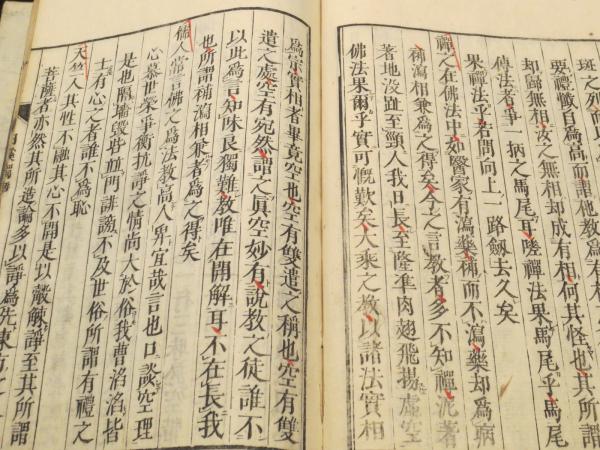 斑之列而
要禮懺自爲高而謂他教
却歸無相汝之無相却成有相何其怪也其所
傳法者爭一柄之馬尾耳嗟禪法果馬尾乎馬尾
果禪法乎若問向上一路劔去久矣
禪之在佛法中如醫家有瀉藥補而不瀉藥却爲病
補瀉相兼爲之得矣今之言教者多不知禪泥著
著地没趾至頸人我日長至隆準肉翅飛揚虚空
佛法果爾乎實可慨歎矣大乘之教以諸法實相
爲宗實相者畢竟空也空有雙遣之稱也空有雙
遣之處空有宛然謂之眞空妙有說教之徒誰不
以此爲言知味良獨難教唯在開解耳不在長我
也所謂補瀉相兼爲之得矣
儒人常言佛之爲法教高人卑宜哉言也口談空理
心慕世榮爭衡抗諍之情尚大於俗我曹滔滔皆
是也墻毀訾並門誹謗不及世俗所謂有禮之
士有心之者誰不爲恥
天竺人其性不融其心不開是以嚴諍至其所謂
菩薩者亦然其所造論多以諍爲先東方之